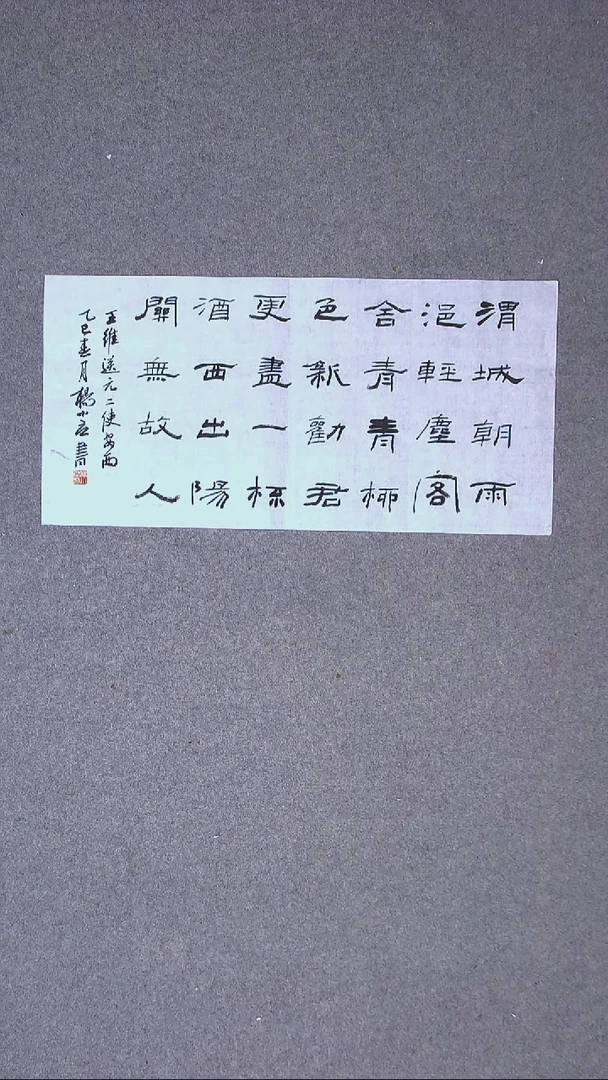 渭城朝雨
浥輕塵客
舍青青柳
色新勸君
更盡一杯
酒西出陽
關無故人
王維送元二使安西
乙巳春月楊小書